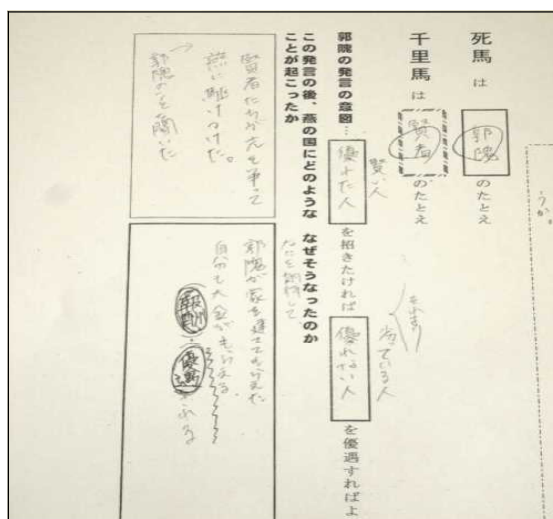 うか。
死馬は郭隗のたとえ
千里馬は賢者のたとえ
郭隗の発言の意図…優れた人を招きたければ優れない人を優遇すればよ
賢い人
劣っている人
この発言の後、燕の国にどのような
ことが起こったか
なぜそうなったのか
賢者たちが先を争って
燕に駆けつけた。
郭隗のことを聞いた
郭隗が家を建ててもらえた
自分も大金がもらえる
優遇